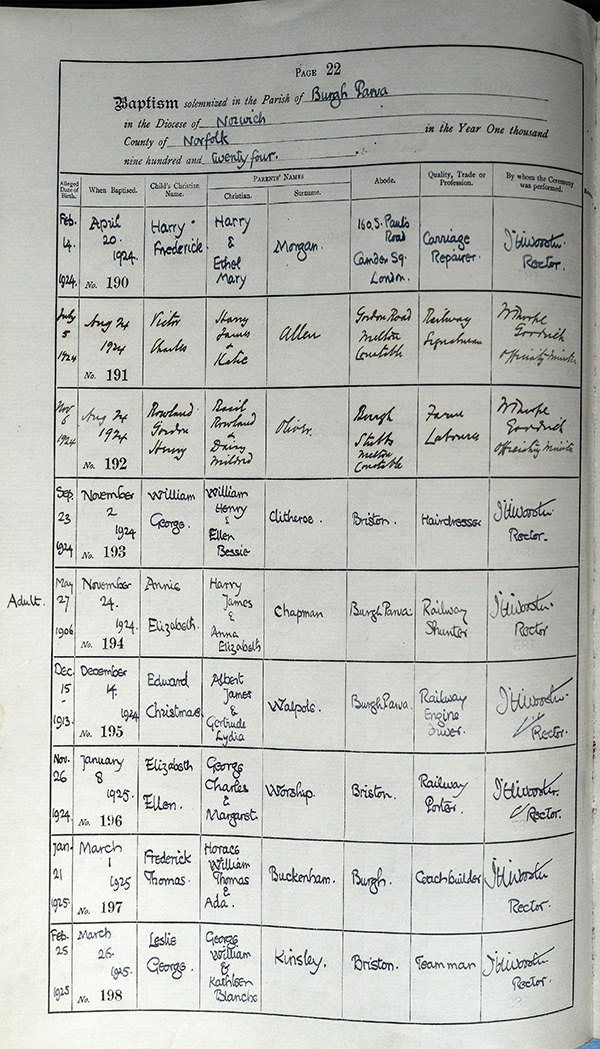 PAGE 22
Baptism solemnized in the Parish of Burgh Parva
in the Diocese of Norwich
County of Norfolk in the Year One thousand
nine hundred and twenty four.
Alleged Date of Birth. When Baptised. Child's Christian Name. PARENTS' NAMES Christian. Surname. Abode. Quality, Trade or Profession. By whom the Ceremony was performed.
Feb. 14. 1924. April 20. 1924. No. 190 Harry Frederick. Harry & Ethel Mary Morgan. 160, S. Pauls Road Camden Sq. London. Carriage Repairer. Rector.
July 5 1924 Aug 24 1924 No. 191 Victor Charles Harry James & Katie Allen Gordon Road Melton Constable Railway Signalman Goodrich Officiatg Minister
Nov 6 1924 Aug 24 1924 No. 192 Rowland Gordon Henry Rowland & Daisy Mildred Oliver. Burgh Stubbs Melton Constable Farm Labourer Goodrich Officiatg Minister
Sep. 23 1924 November 2 1924 No. 193 William George. William Henry & Ellen Bessie Clitheroe. Briston. Hairdresser Rector.
Adult. May 27 1906 November 24. 1924. No. 194 Annie Elizabeth. Harry James & Anna Elizabeth Chapman Burgh Parva. Railway Shunter Rector
Dec. 15 - 1913. December 14. 1924 No. 195 Edward Christmas. Albert James & Gertrude Lydia Walpole. Burgh Parva. Railway Engine Driver. Rector.
Nov. 26 1924 January 8 1925. No. 196 Elizabeth Ellen. George Charles & Margaret. Worship. Briston. Railway Porter. Rector.
Jan. 21 1925. March 1 1925 No. 197 Frederick Thomas. Horace William Thomas & Ada. Buckenham. Burgh. Coachbuilder Rector.
Feb. 25 1925 March 26. 1925. No. 198 Leslie George. George William & Kathleen Blanche Kinsley. Briston. Teamman Rector.